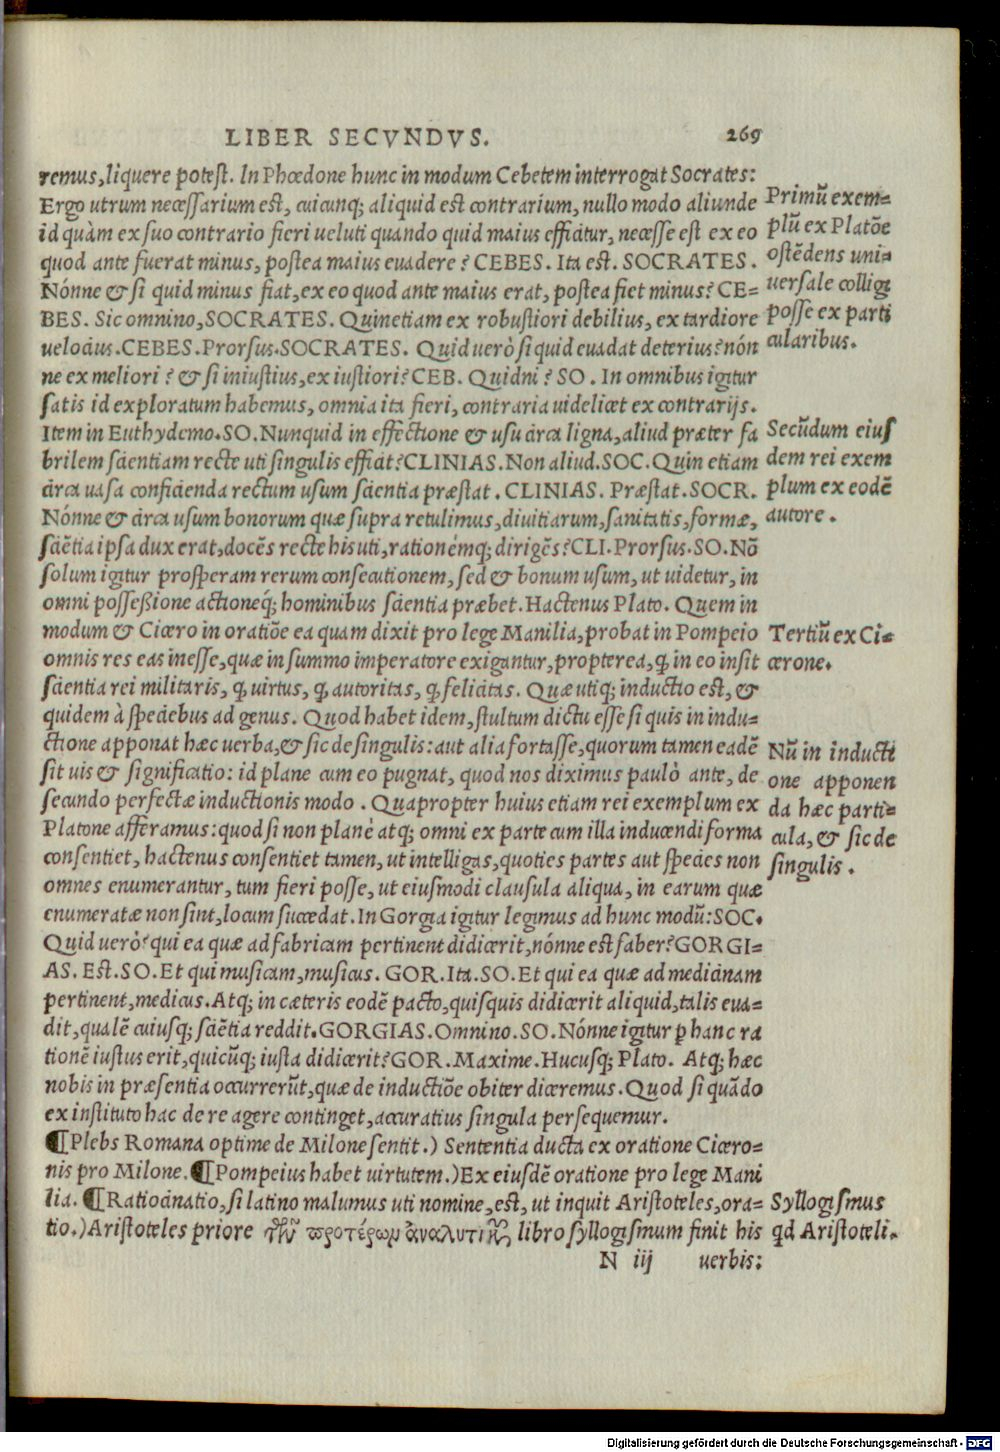 LIBER SECVNDVS. 269
remus, liquere potest. In Phœdone hunc in modum Cebetem interrogat Socrates:
Ergo utrum necessarium est, cuicunq; aliquid est contrarium, nullo modo aliunde
id quàm ex suo contrario fieri ueluti quando quid maius efficitur, necesse est ex eo
quod ante fuerat minus, postea maius euadere? CEBES. Ita est. SOCRATES.
Nónne & si quid minus fiat, ex eo quod ante maius erat, postea fiet minus? CE=
BES. Sic omnino, SOCRATES. Quinetiam ex robustiori debilius, ex tardiore
uelocius. CEBES. Prorsus. SOCRATES. Quid uerò si quid euadat deterius? nón
ne ex meliori? & si iniustius, ex iustiori? CEB. Quidni? SO. In omnibus igitur
satis id exploratum habemus, omnia ita fieri, contraria uidelicet ex contrarijs.
Item in Euthydemo. SO. Nunquid in effectione & usu circa ligna, aliud præter fa
brilem scientiam recte uti singulis efficit? CLINIAS. Non aliud. SOC. Quin etiam
circa uasa conficienda rectum usum scientia præstat. CLINIAS. Præstat. SOCR.
Nónne & circa usum bonorum quæ supra retulimus, diuitiarum, sanitatis, formæ,
sciẽtia ipsa dux erat, docẽs recte his uti, rationémq; dirigẽs? CLI. Prorsus. SO. Nõ
solum igitur prosperam rerum consecutionem, sed & bonum usum, ut uidetur, in
omni possessione actioneq́; hominibus scientia præbet. Hactenus Plato. Quem in
modum & Cicero in oratiõe ea quam dixit pro lege Manilia, probat in Pompeio
omnis res eas inesse, quæ in summo imperatore exigantur, propterea, ꝙ in eo insit
scientia rei militaris, ꝙ uirtus, ꝙ autoritas, ꝙ felicitas. Quæ utiq; inductio est, &
quidem à speciebus ad genus. Quod habet idem, stultum dictu esse si quis in indu=
ctione apponat hæc uerba, & sic de singulis: aut alia fortasse, quorum tamen eadẽ
sit uis & significatio: id plane cum eo pugnat, quod nos diximus paulò ante, de
secundo perfectæ inductionis modo. Quapropter huius etiam rei exemplum ex
Platone afferamus: quod si non planè atq; omni ex parte cum illa inducendi forma
consentiet, hactenus consentiet tamen, ut intelligas, quoties partes aut species non
omnes enumerantur, tum fieri posse, ut eiusmodi clausula aliqua, in earum quæ
enumeratæ non sint, locum succedat. In Gorgia igitur legimus ad hunc modũ: SOC.
Quid uerò? qui ea quæ ad fabricam pertinent didicerit, nónne est faber? GORGI=
AS. Est. SO. Et qui musicam, musicus. GOR. Ita. SO. Et qui ea quæ ad medicinam
pertinent, medicus. Atq; in cæteris eodẽ pacto, quisquis didicerit aliquid, talis eua=
dit, qualẽ cuiusq; sciẽtia reddit. GORGIAS. Omnino. SO. Nónne igitur ꝑ hanc ra
tionẽ iustus erit, quicũq; iusta didicerit? GOR. Maxime. Hucusq; Plato. Atq; hæc
nobis in præsentia occurrerũt, quæ de inductiõe obiter diceremus. Quod si quãdo
ex instituto hac de re agere continget, accuratius singula persequemur.
¶Plebs Romana optime de Milone sentit.) Sententia ducta ex oratione Cicero=
nis pro Milone. ¶Pompeius habet uirtutem.) Ex eiusdẽ oratione pro lege Mani
lia. ¶Ratiocinatio, si latino malumus uti nomine, est, ut inquit Aristoteles, ora=
tio.) Aristoteles priore τῶν προτέρων ἀναλυτικῶν libro syllogismum finit his
N iij uerbis:
Primũ exem=
plũ ex Platõe
ostẽdens uni=
uersale colligi
posse ex parti
cularibus.
Secũdum eius
dem rei exem
plum ex eodẽ
autore.
Tertiũ ex Ci=
cerone.
Nũ in inducti
one apponen
da hæc parti=
cula, & sic de
singulis.
Syllogismus
qd Aristoteli.
Digitalisierung gefördert durch die Deutsche Forschungsgemeinschaft - DFG